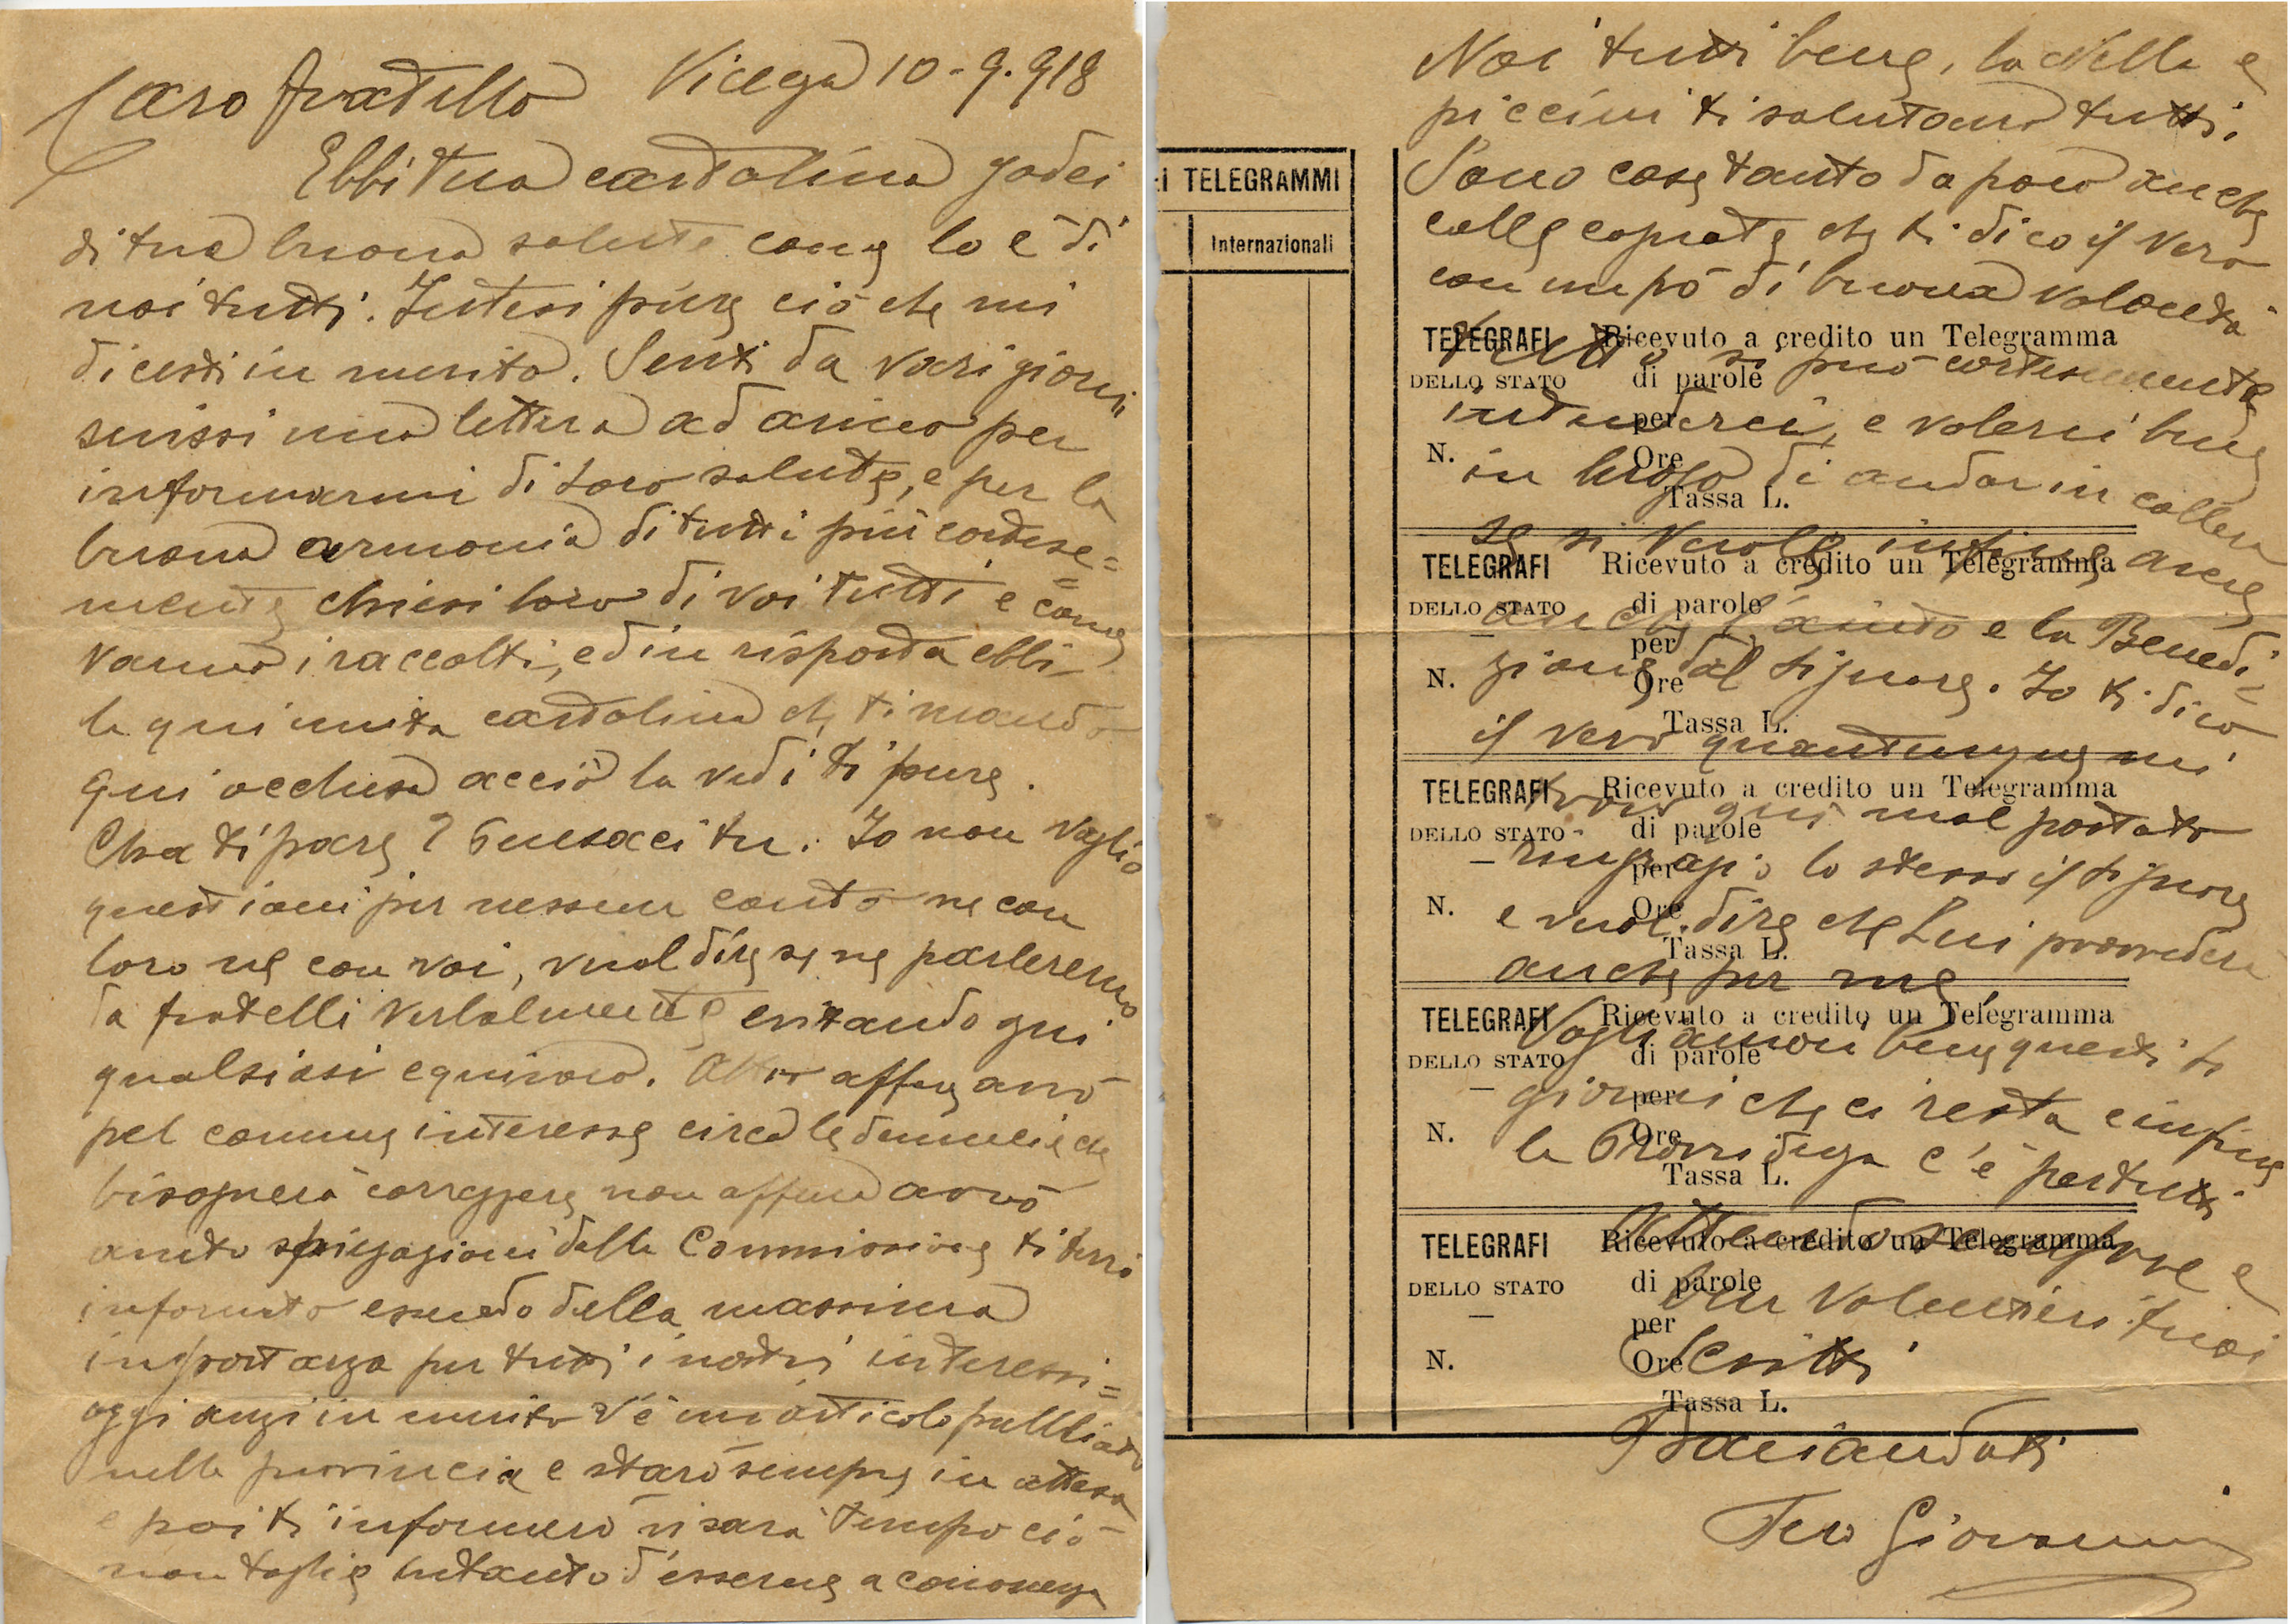 Vicenza 10-9-918
Caro fratello
Ebbi tua cartolina godei
di tua buona salute come lo è di
noi tutti. Intesi pure ciò che mi
dicesti in merito. Senti da vari giorni
scrissi una lettera ad arico per
informarmi di loro salute, e per la
buona armonia di tutti più cortese=
mente chiesi loro di voi tutti e come
vanno i raccolti, ed in risposta ebbi
la qui unita cartolina che ti mando
qui acclusa acciò la vedi ti pure.
Cha ti pare? Pensaci tu. Io non voglio
questioni per nessun conto ne con
loro ne con voi, vuol dire se ne parleremo
da fratelli verbalmente evitando qui
qualsiasi equivoco. Altro affare avrò
pel comune interesse circa le denuncie che
bisognerà correggere non appena avrò
avuto spiegazioni dalla Commissione ti terrò
informato essendo della massima
importanza per tutti i nostri interessi=
oggi anzi in merito v'è un articolo pubblicato
nella provincia e starò sempre in attesa
e poi ti informerò vi sarà tempo ciò
non toglie intanto d'esserne a conoscenza
Noi tutti bene, la Nella e
piccini ti salutano tutti.
Sono cose tanto da poco anche
colle coprate che ti dico il vero
con un pò di buona volontà
tutto si può cortesemente
intenderci, e volerci bene
in luogo di andar in collera
se si vuole infine avere
anche l'aiuto e la Benedi=
zione dal Signore. Io ti dico
il vero quantunque mi
trovo qui mal portato
ringrazio lo stesso il Signore
e vuol dire che Lui provvederà
anche per me.
Vogliamoci bene questi ti
giorni che ci resta e infine
la Provvidenza c'è per tutti
Attendo sempre e
ben volentieri tuoi
Scritti
Baciandoti
Tuo Giovanni
EI TELEGRAMMI
Internazionali
TELEGRAFI Ricevuto a credito un Telegramma
DELLO STATO di parole
per
N. Ore
Tassa L.
TELEGRAFI Ricevuto a credito un Telegramma
DELLO STATO di parole
per
N. Ore
Tassa L.
TELEGRAFI Ricevuto a credito un Telegramma
DELLO STATO di parole
per
N. Ore
Tassa L.
TELEGRAFI Ricevuto a credito un Telegramma
DELLO STATO di parole
per
N. Ore
Tassa L.
TELEGRAFI Ricevuto a credito un Telegramma
DELLO STATO di parole
per
N. Ore
Tassa L.